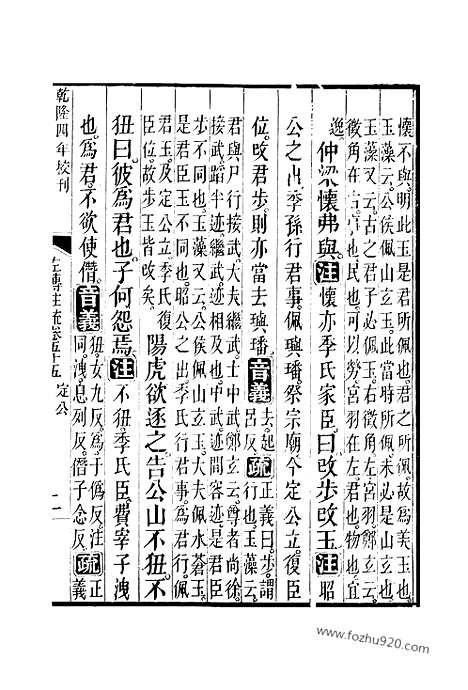 懷不與明此玉是君所佩也君之所佩故爲美玉也
玉藻云公侯佩山玄玉此當時所佩未必是山玄也
玉藻又云古之君子必佩玉右徵角左宮羽鄭玄云
徵角在右事也民也可以勞宮羽在左君也物也宜
逸仲梁懷弗與注懷亦季氏家臣曰改步改玉注昭
公之出季孫行君事佩璵璠祭宗廟今定公立復臣
位改君步則亦當去璵璠音義去起呂反疏正義曰步謂行也玉藻云
君與尸行接武大夫繼武士中武鄭玄云尊者尚徐
接武蹈半迹繼武迹相及也中武迹間容迹是君臣
步不同也玉藻又云公侯佩山玄玉大夫佩水蒼玉
是君臣玉不同也昭公之出季氏行君事爲君行佩
君玉及定公立季氏復臣位故步玉皆改矣陽虎欲逐之告公山不狃不
狃曰彼爲君也子何怨焉注不狃季氏臣費宰子洩
也爲君不欲使僭音義狃女九反爲于僞反注同洩息列反僭子念反疏正義
乾隆四年校刊
左傳注疏卷五十五 定公
www.fozhu920.com